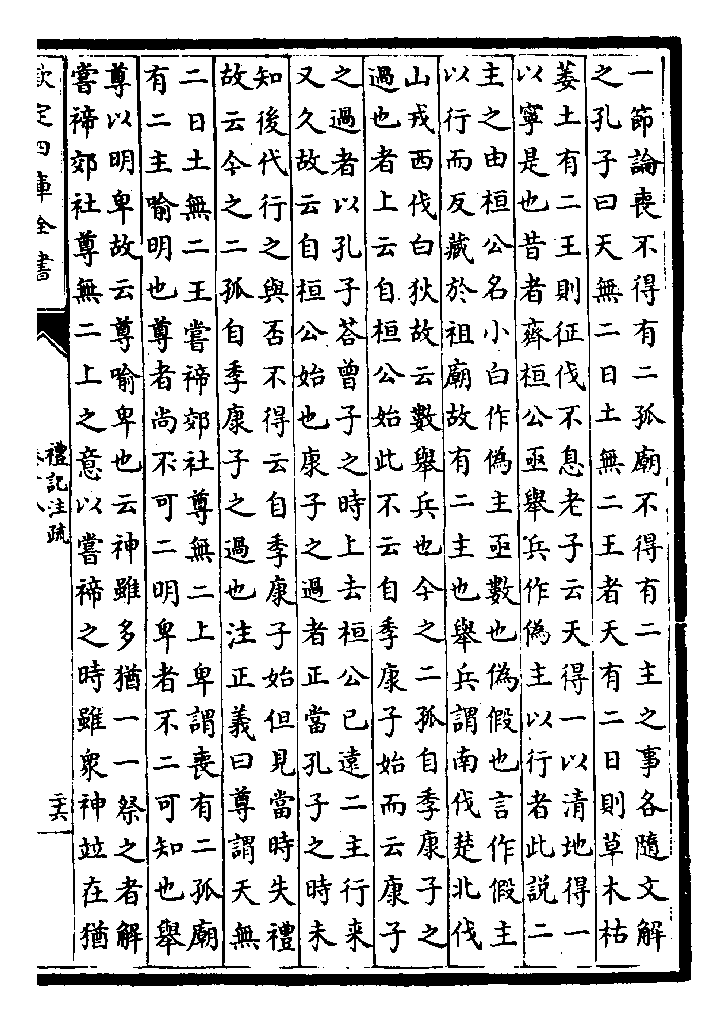 一節論喪不得有二孤廟不得有二主之事各隨文解
之孔子曰天無二日土無二王者天有二日則草木枯
萎土有二王則征伐不息老子云天得一以清地得一
以寧是也昔者齊桓公亟舉兵作偽主以行者此説二
主之由桓公名小白作偽主亟數也偽假也言作假主
以行而反藏於祖廟故有二主也舉兵謂南伐楚北伐
山戎西伐白狄故云數舉兵也今之二孤自季康子之
過也者上云自桓公始此不云自季康子始而云康子
之過者以孔子荅曾子之時上去桓公已遠二主行来
又久故云自桓公始也康子之過者正當孔子之時未
知後代行之與否不得云自季康子始但見當時失禮
故云今之二孤自季康子之過也注正義曰尊謂天無
二日土無二王嘗禘郊社尊無二上卑謂喪有二孤廟
有二主喻明也尊者尚不可二明卑者不二可知也舉
尊以明卑故云尊喻卑也云神雖多猶一一祭之者解
嘗禘郊社尊無二上之意以嘗禘之時雖衆神並在猶
欽定四庫全書
禮記注疏
二六